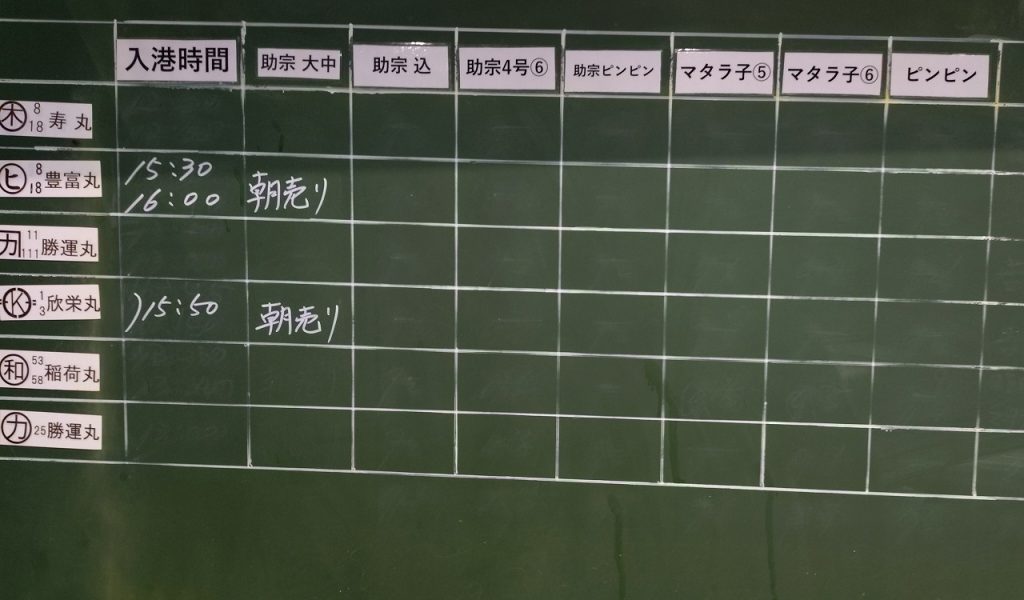 入港時間 助宗 大中 助宗 込 助宗4号⑥ 助宗ピンピン マタラ子⑤ マタラ子⑥ ピンピン
㊍ 8 18 寿丸
ヒ 8 18 豊富丸 15:30 16:00 朝売り
カ 11 111 勝運丸
K 1 3 欣栄丸 )15:50 朝売り
和 53 58 稲荷丸
カ 25 勝運丸